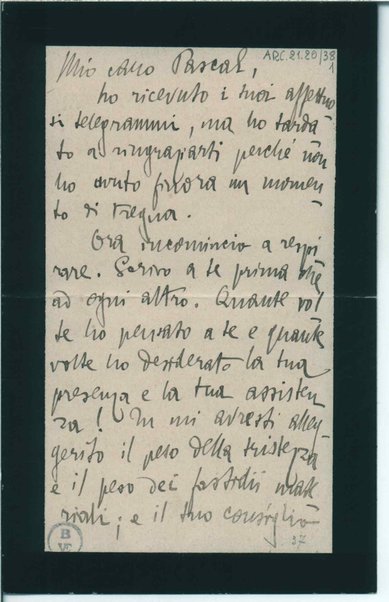 ARC.21.20/38
1
Mio caro Pascal,
ho ricevuto i tuoi affettuo
si telegrammi, ma ho tarda
to a ringraziarti perché non
ho avuto finora un momen
to di tregua.
Ora incomincio a respi
rare. Scrivo a te prima che
ad ogni altro. Quante vol
te ho pensato a te e quante
volte ho desiderato la tua
presenza e la tua assisten
za! Tu mi avresti alleg
gerito il peso della tristezza
e il peso dei fastidii mate
riali; e il tuo consiglio
37
B
VE